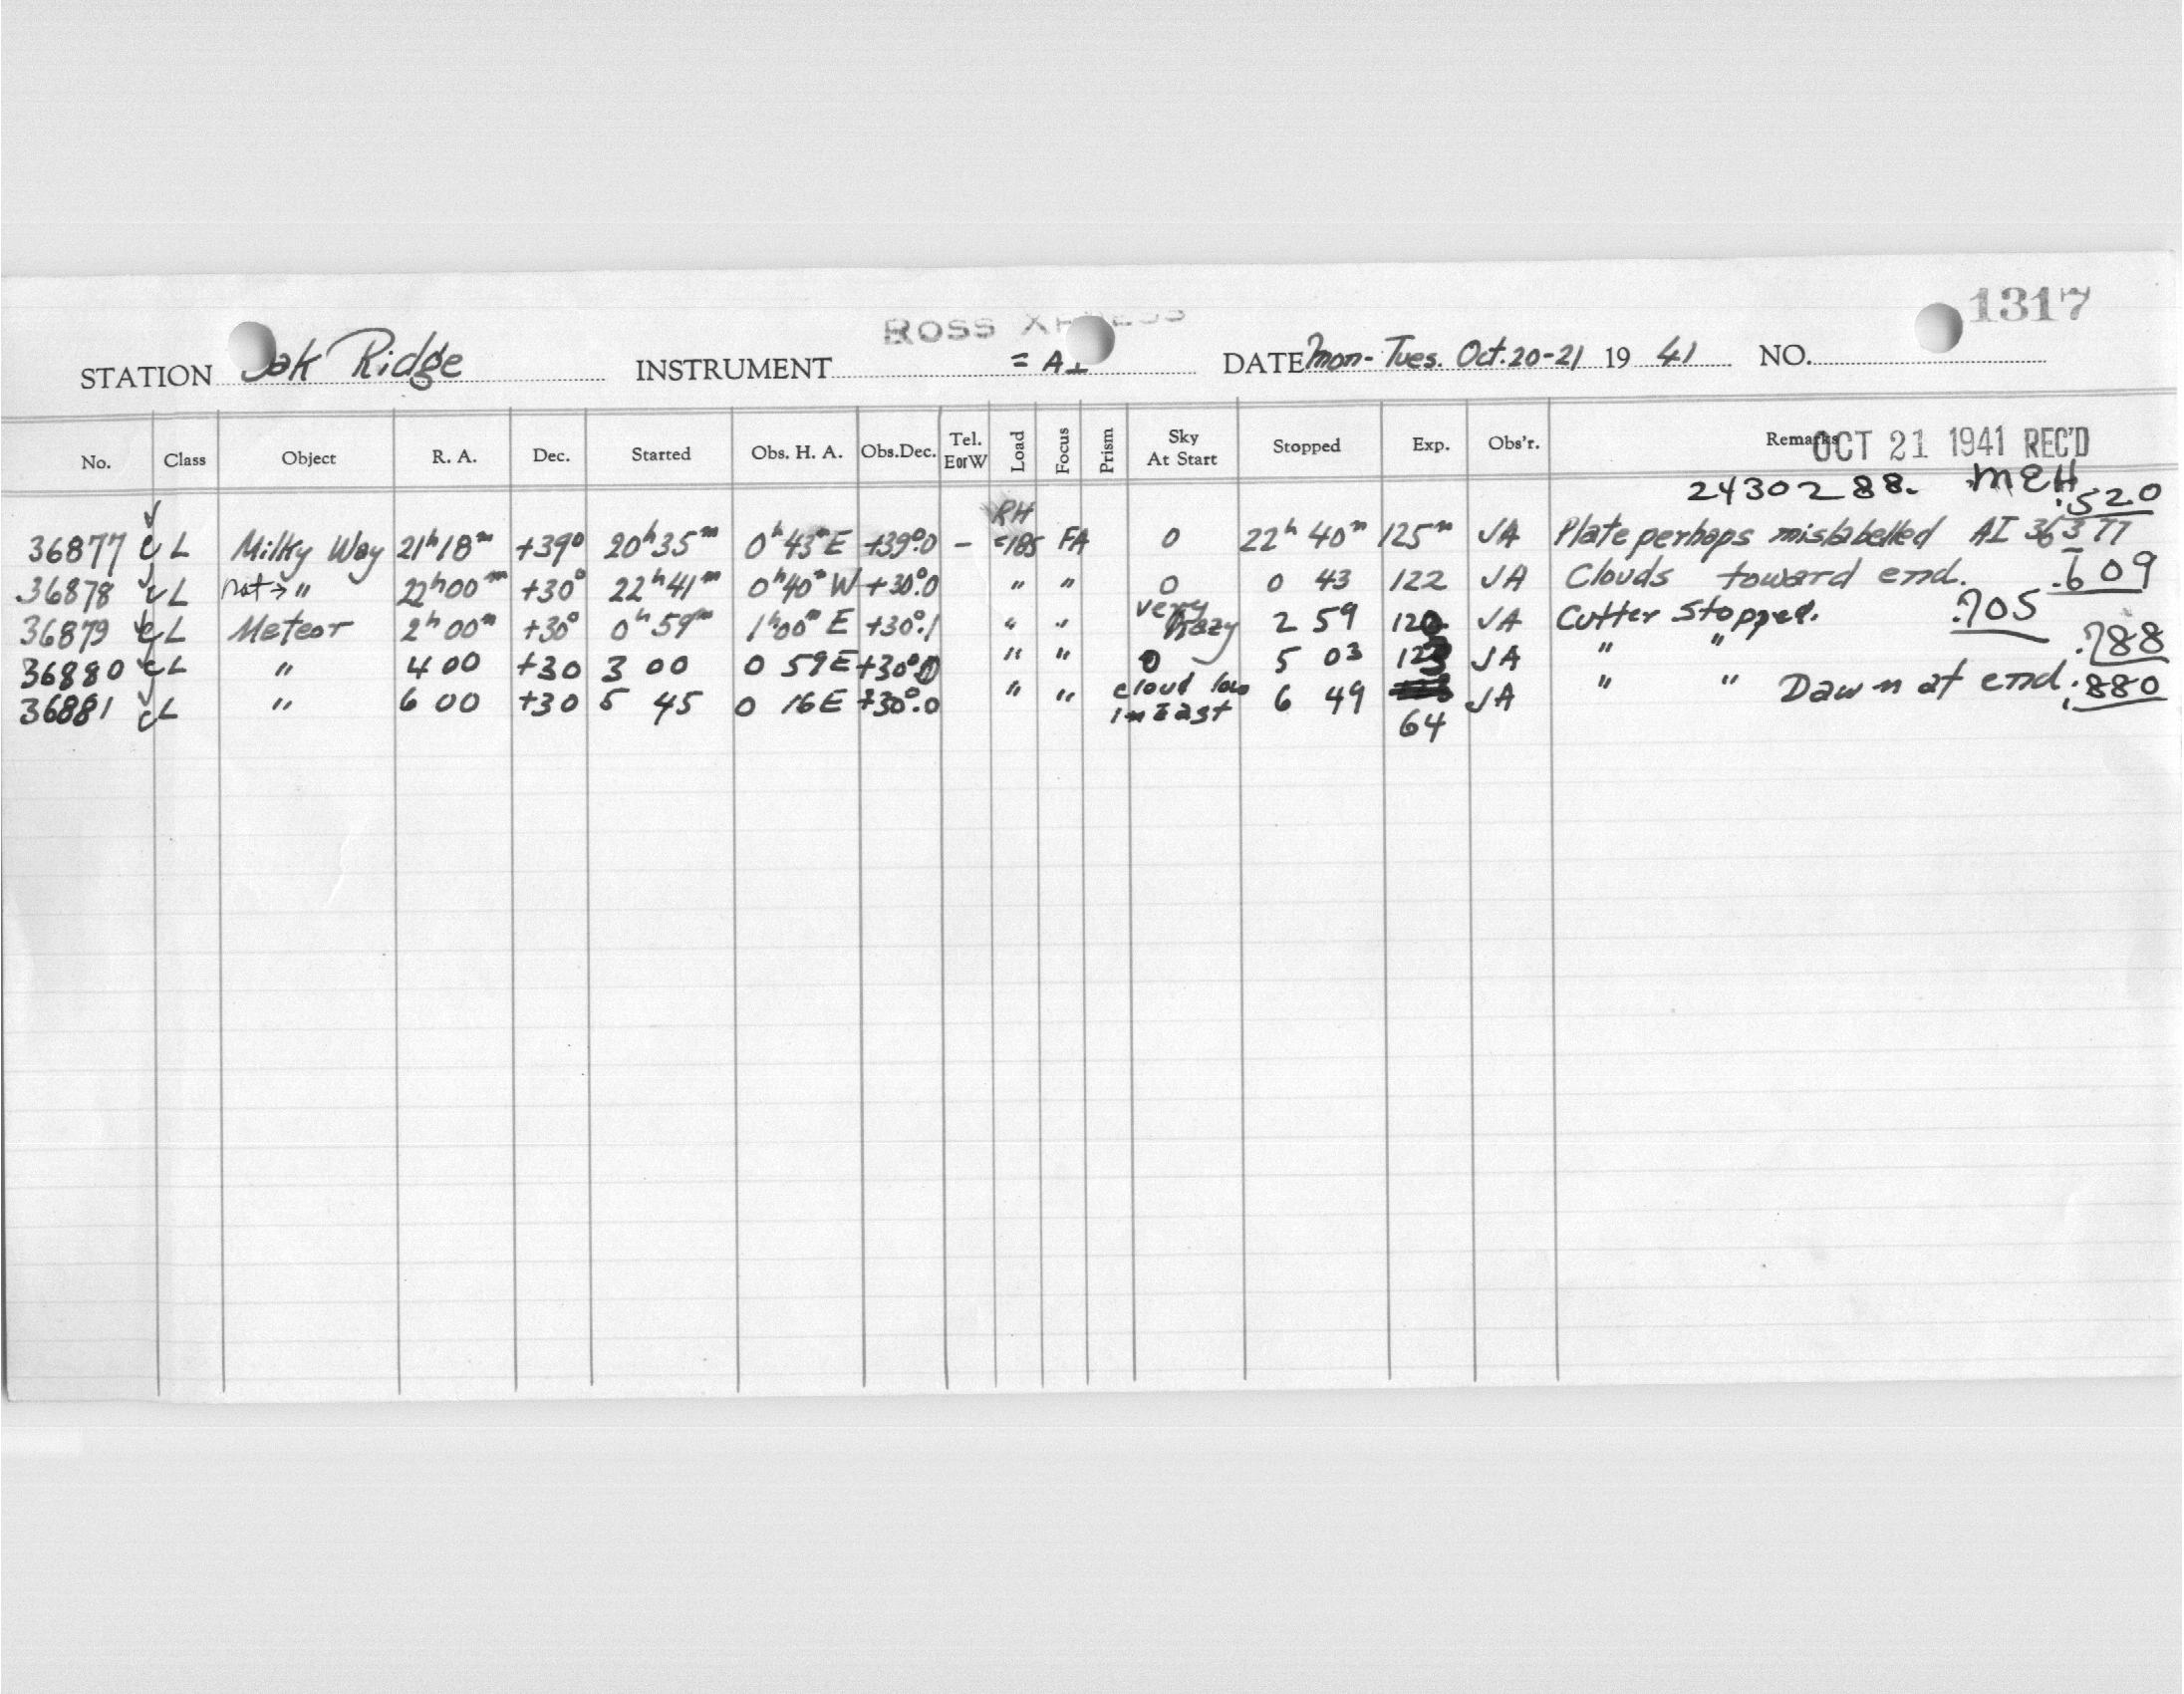 1317
ROSS XPRESS
STATION Oak Ridge INSTRUMENT = AI DATE Mon-Tues. Oct. 20-21 19 41 NO.
No. Class Object R. A. Dec. Started Obs. H. A. Obs.Dec. Tel. EorW Load Focus Prism Sky At Start Stopped Exp. Obs'r. Remarks
OCT 21 1941 REC'D
2430288. MEH .520
36877 cL Milky Way 21h18m +39° 20h35m 0h43mE +39°.0 – RH FA 0 22h 40m 125m JA Plate perhaps mislabelled AI 36377
36878 cL not→ " 22h00m +30° 22h41m 0h40mW +30°.0 " " 0 0 43 122 JA Clouds toward end. .609
36879 cL Meteor 2h00m +30° 0h59m 1h00mE +30°.1 " " very hazy 2 59 120 JA Cutter stopped. .705
36880 cL " 4 00 +30 3 00 0 59E +30°.0 " " 0 5 03 123 JA " " .788
36881 cL " 6 00 +30 5 45 0 16E +30°.0 " " cloud low in East 6 49 64 JA " " Dawn at end. .880